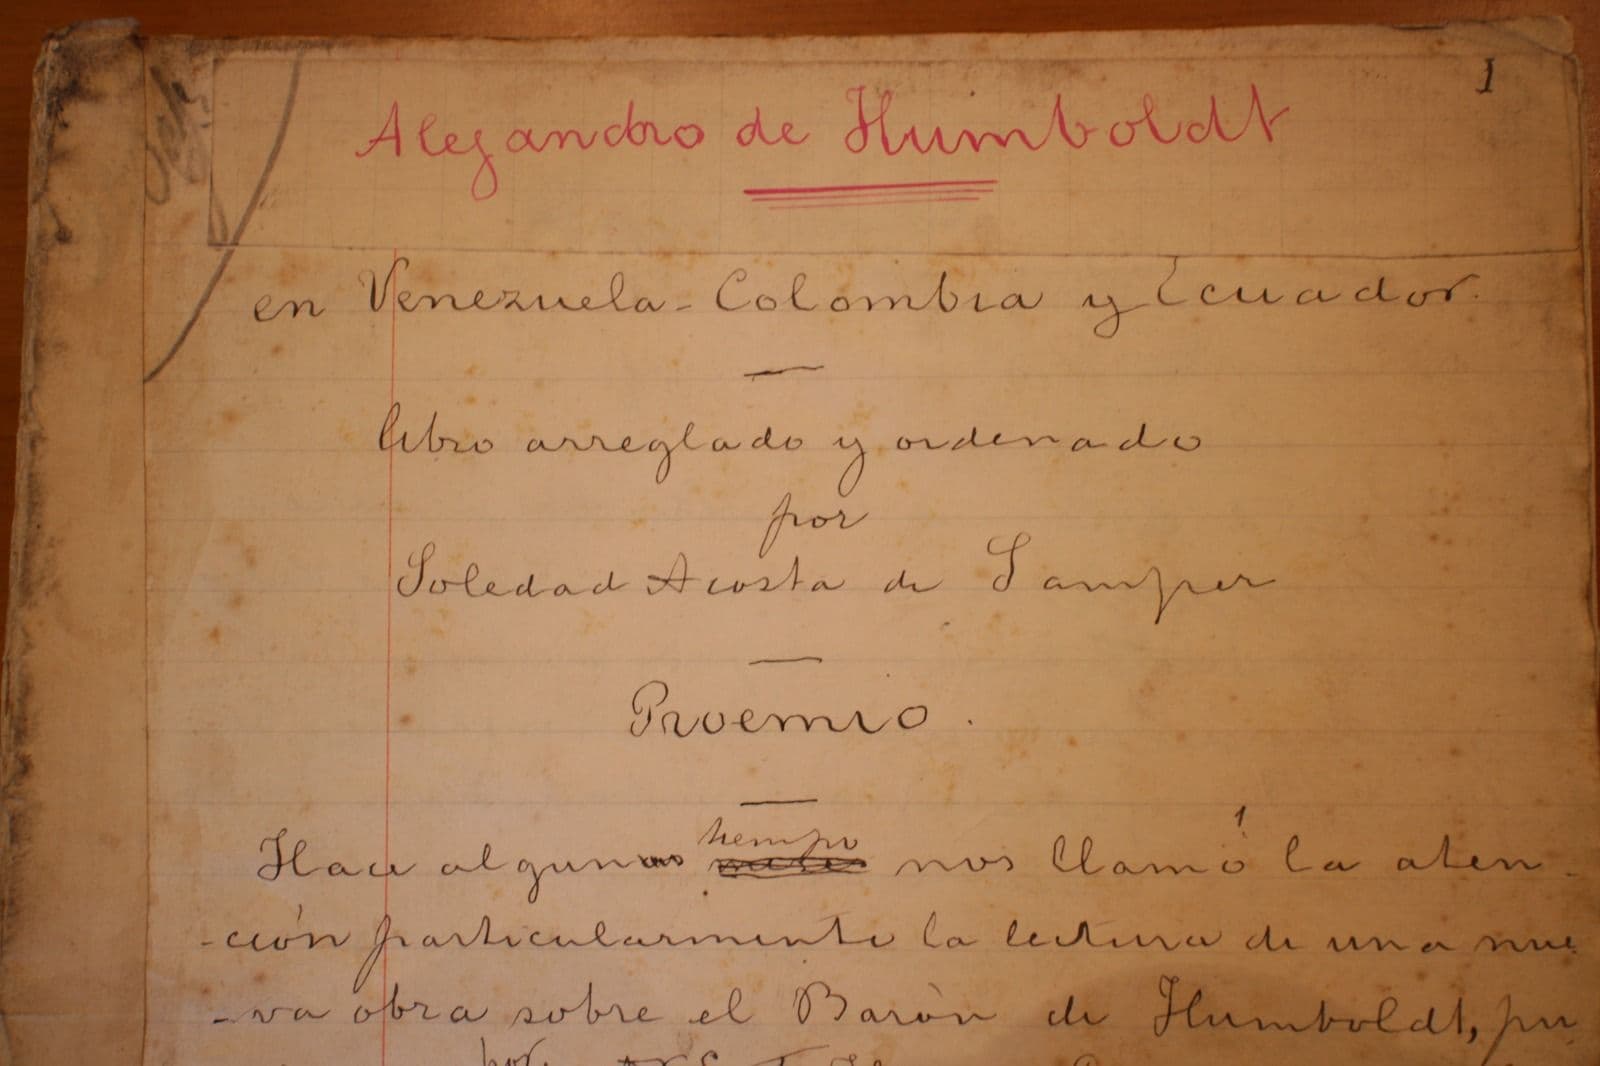 1
Alejandro de Humboldt
en Venezuela - Colombia y Ecuador.
libro arreglado y ordenado
por
Soledad Acosta de Samper
Proemio.
tiempo
Hace algunos nos llamó la aten-
-ción particularmente la lectura de una nue-
-va obra sobre el Barón de Humboldt, pu
por